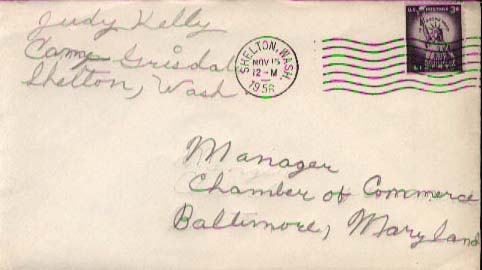 Judy Kelly
Camp Grisdale
Shelton, Wash
SHELTON, WASH.
NOV 15
12-M
1956
U.S. POSTAGE 3¢
Manager
Chamber of Commerce
Baltimore, Maryland